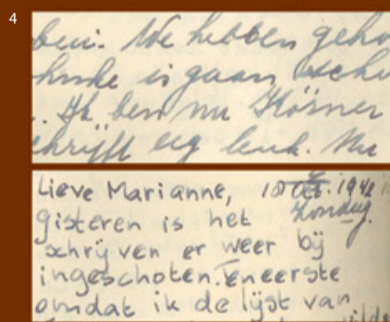 4
ben. We hebben geho
huke is gaan sche
. Ik ben nu Körner
chrijft erg leuk. Nu
Lieve Marianne, 18 Oct. 1942
Zondag.
gisteren is het
schrijven er weer bij
ingeschoten. Teneerste
omdat ik de lijst van